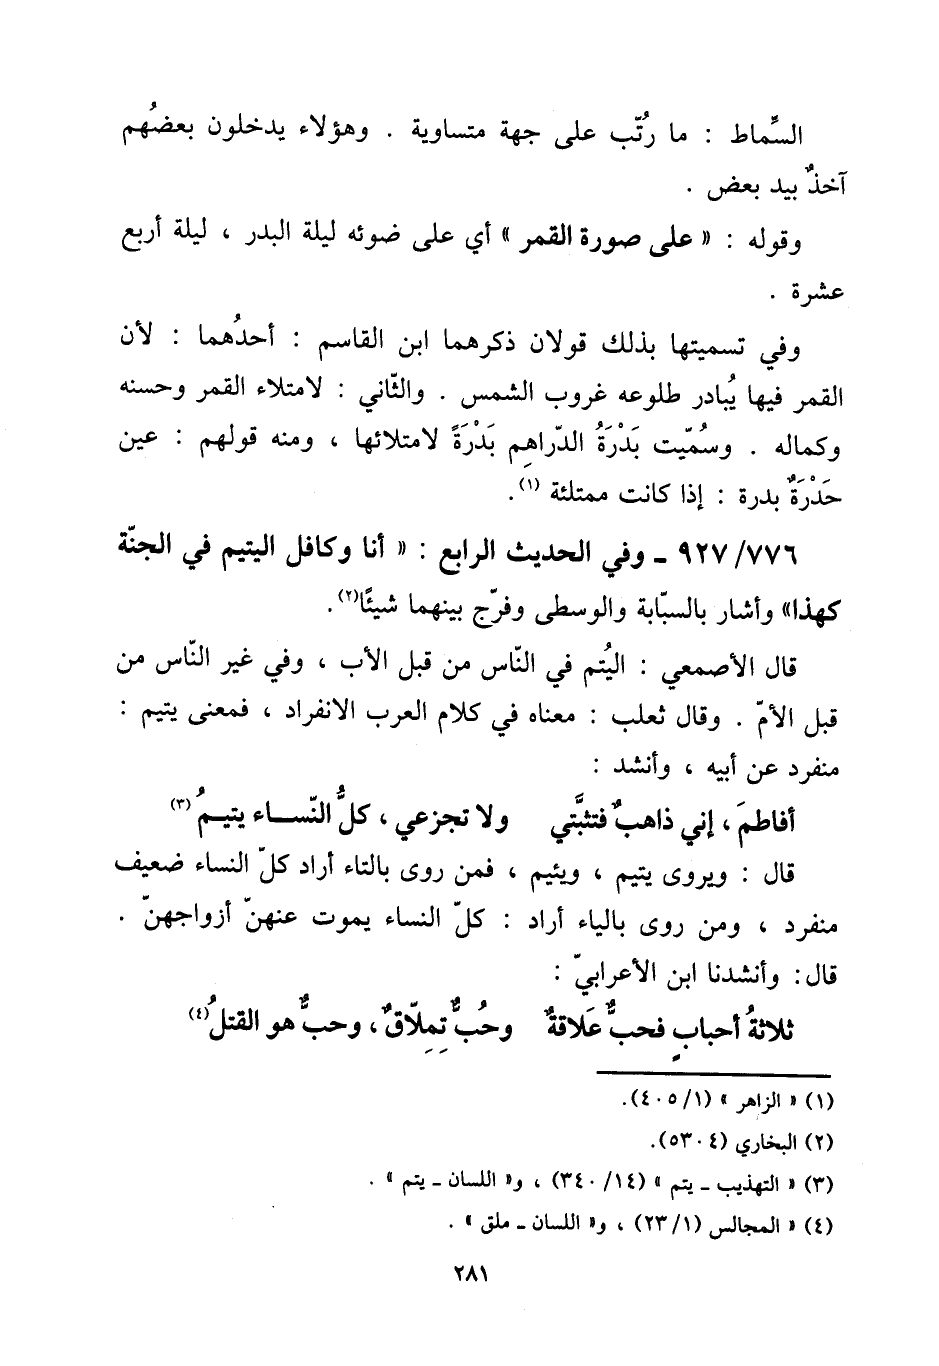 السِّماط : ما رُتّب على جهة متساوية . وهؤلاء يدخلون بعضُهم
آخذٌ بيد بعض .
وقوله : « على صورة القمر » أي على ضوئه ليلة البدر ، ليلة أربع
عشرة .
وفي تسميتها بذلك قولان ذكرهما ابن القاسم : أحدُهما : لأن
القمر فيها يُبادر طلوعه غروب الشمس . والثّاني : لامتلاء القمر وحسنه
وكماله . وسُمّيت بَدْرَةُ الدّراهِم بَدْرَةً لامتلائها ، ومنه قولهم : عين
حَدْرَةٌ بدرة : إذا كانت ممتلئة (١).
٩٢٧/٧٧٦ ـ وفي الحديث الرابع : « أنا وكافل اليتيم في الجنّة
كهذا» وأشار بالسبّابة والوسطى وفرّج بينهما شيئًا(٢).
قال الأصمعي : اليُتم في النّاس من قبل الأب ، وفي غير النّاس من
قبل الأمّ . وقال ثعلب : معناه في كلام العرب الانفراد ، فمعنى يتيم :
منفرد عن أبيه ، وأنشد :
أفاطمَ ، إني ذاهبٌ فتثبَّتي ولا تجزعي ، كلُّ النّســاء يتيمُ (٣)
قال : ويروى يتيم ، ويئيم ، فمن روى بالتاء أراد كلّ النساء ضعيف
منفرد ، ومن روى بالياء أراد : كلّ النساء يموت عنهنّ أزواجهنّ .
قال: وأنشدنا ابن الأعرابيّ :
ثلاثةُ أحبابٍ فحبٌّ عَلاقةٌ وحُبٌّ تِمِلّاقٌ ، وحبٌّ هو القتلُ(٤)
(١) « الزاهر » (٤٠٥/١).
(٢) البخاري (٥٣٠٤).
(٣) « التهذيب ـ يتم » (٣٤٠/١٤) ، و« اللسان ـ يتم » .
(٤) « المجالس (٢٣/١) ، و« اللسان ـ ملق » .
٢٨١